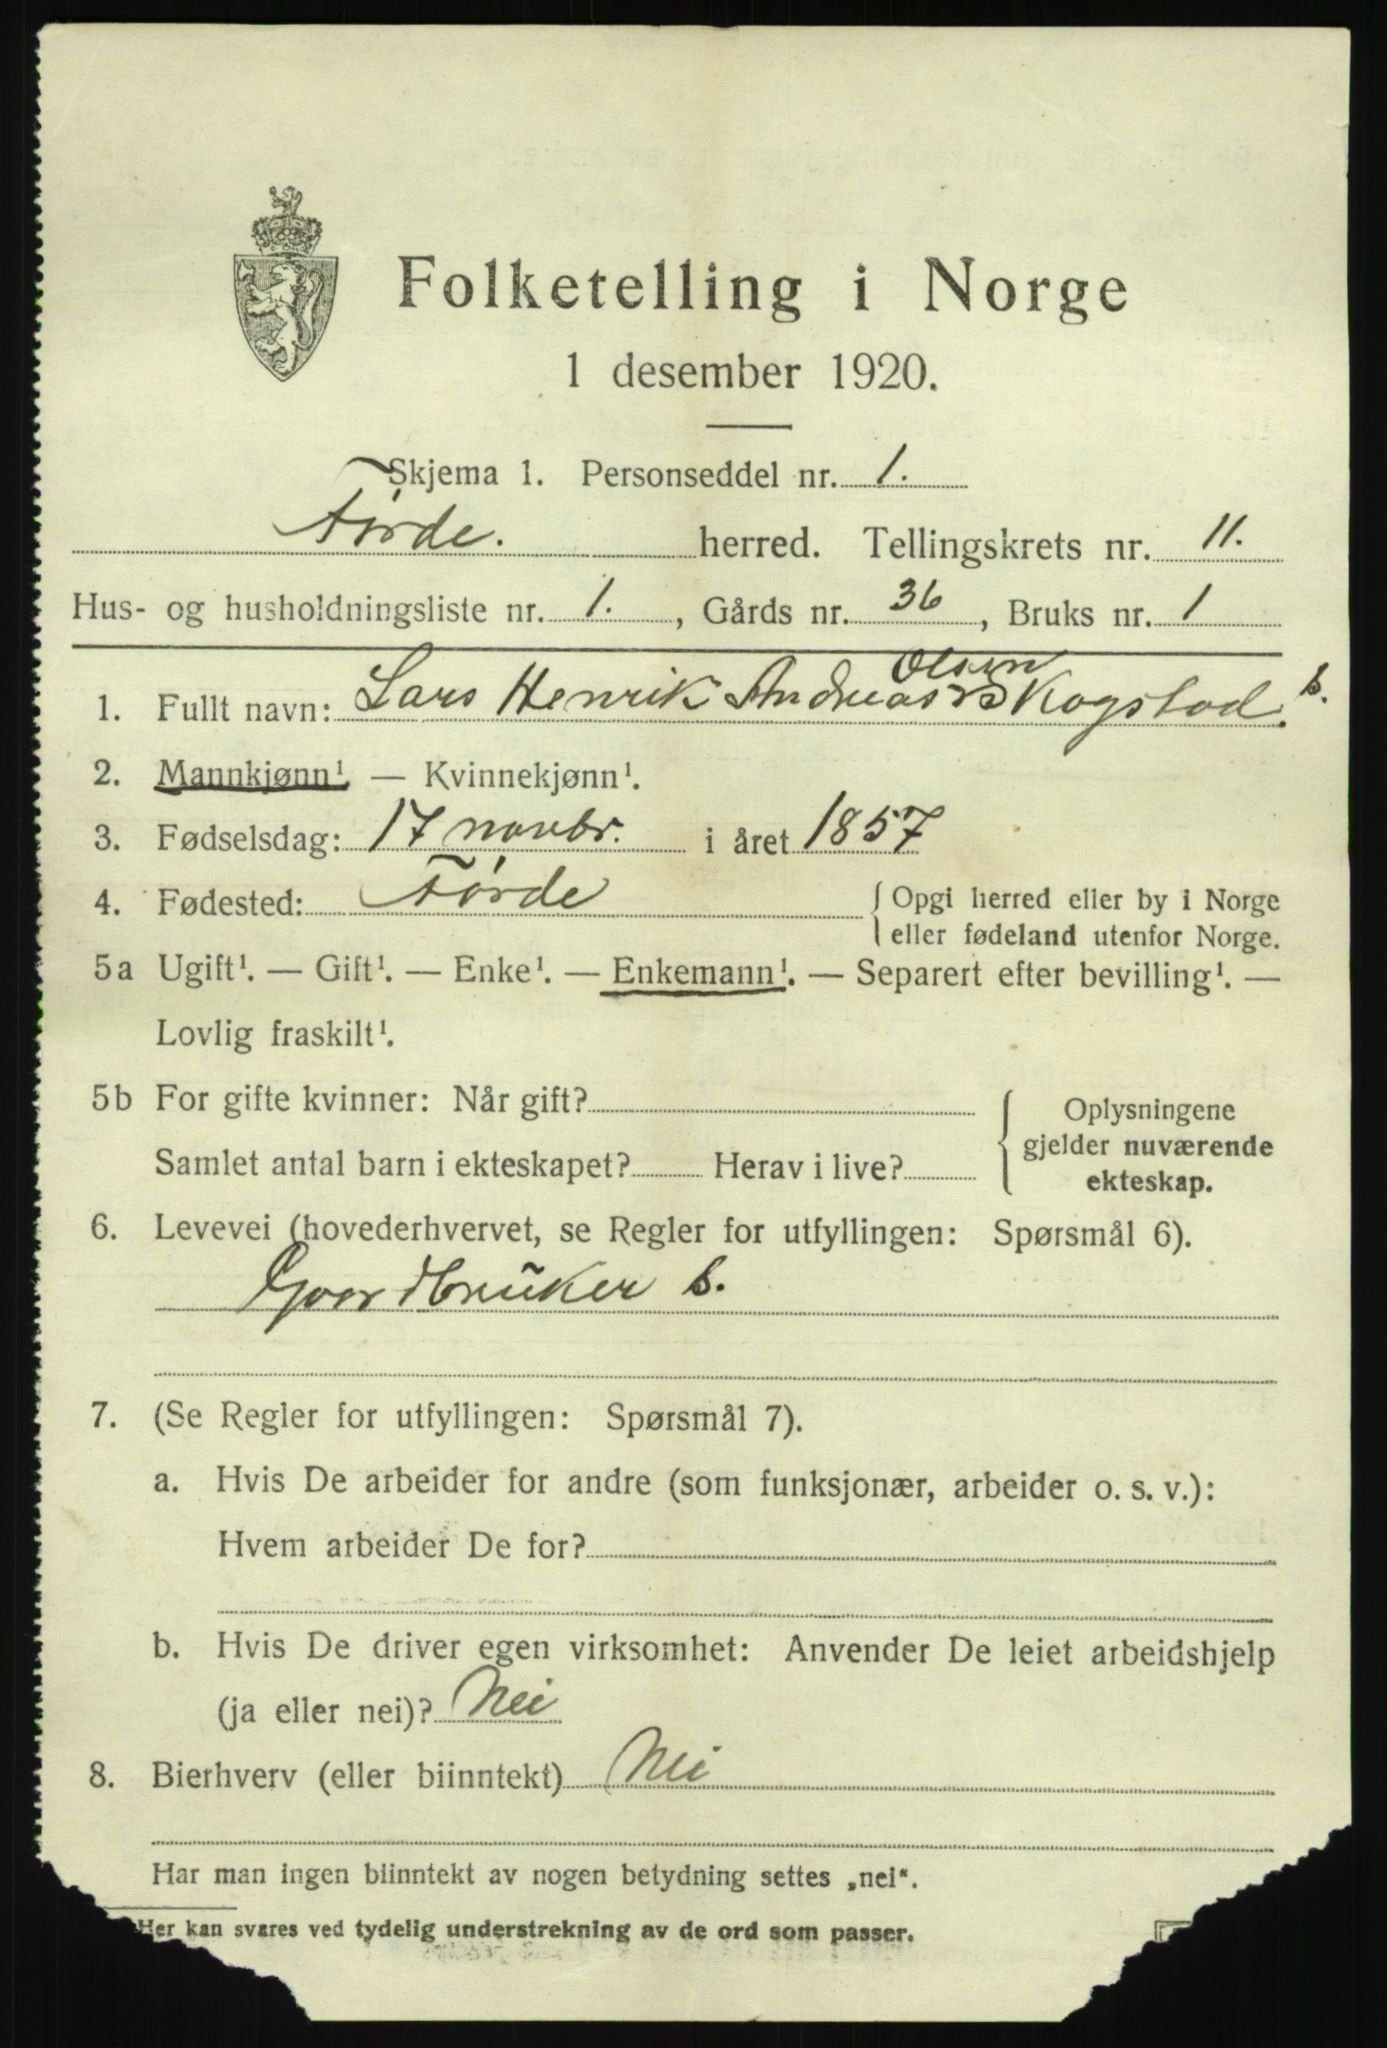 Folketelling i Norge
1 desember 1920.
Skjema 1. Personseddel nr. 1.
Førde. herred. Tellingskrets nr. 11.
Hus- og husholdningsliste nr. 1., Gårds nr. 36, Bruks nr. 1
Olsen
1. Fullt navn: Lars Henrik Andreas Kogstad. b.
2. Mannkjønn¹. — Kvinnekjønn¹.
3. Fødselsdag: 17 novbr. i året 1857
4. Fødested: Førde { Opgi herred eller by i Norge
eller fødeland utenfor Norge.
5a Ugift¹. — Gift¹. — Enke¹. — Enkemann¹. — Separert efter bevilling¹. —
Lovlig fraskilt¹.
5b For gifte kvinner: Når gift? { Oplysningene
gjelder nuværende
Samlet antal barn i ekteskapet? Herav i live?
ekteskap.
6. Levevei (hovederhvervet, se Regler for utfyllingen: Spørsmål 6).
Goordbruker b.
7. (Se Regler for utfyllingen: Spørsmål 7).
a. Hvis De arbeider for andre (som funksjonær, arbeider o. s. v.):
Hvem arbeider De for?
b. Hvis De driver egen virksomhet: Anvender De leiet arbeidshjelp
(ja eller nei)? Nei
8. Bierhverv (eller biinntekt) Nei
Har man ingen biinntekt av nogen betydning settes „nei“.
Her kan svares ved tydelig understrekning av de ord som passer.